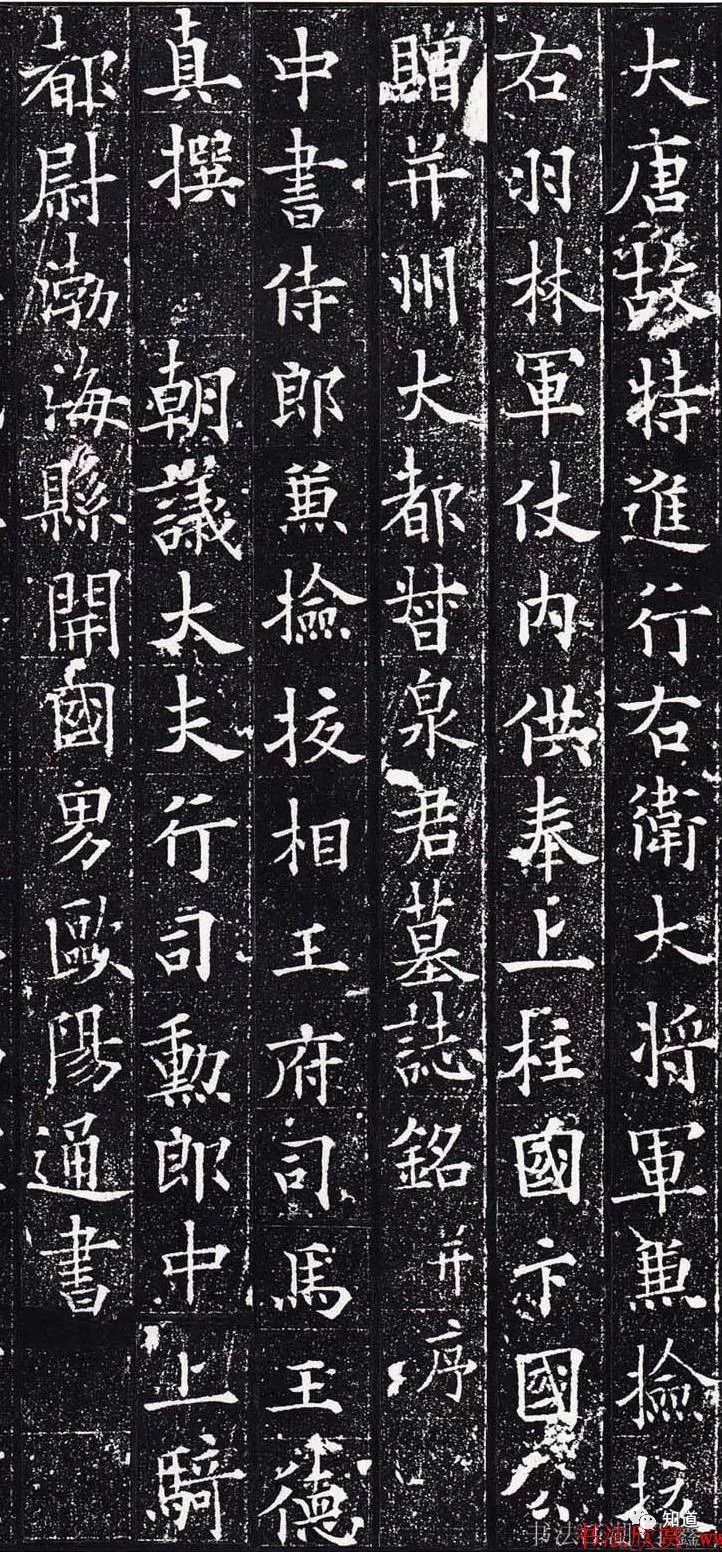 大唐故特進行右衛大将軍蕪撿挍
右羽林軍仗内供奉上柱國卞國公
贈并州大都督泉君墓誌銘并序
中書侍郎蕪撿挍相王府司馬王德
真撰 朝議大夫行司勳郎中上騎
都尉渤海縣開國男歐陽通書
知道